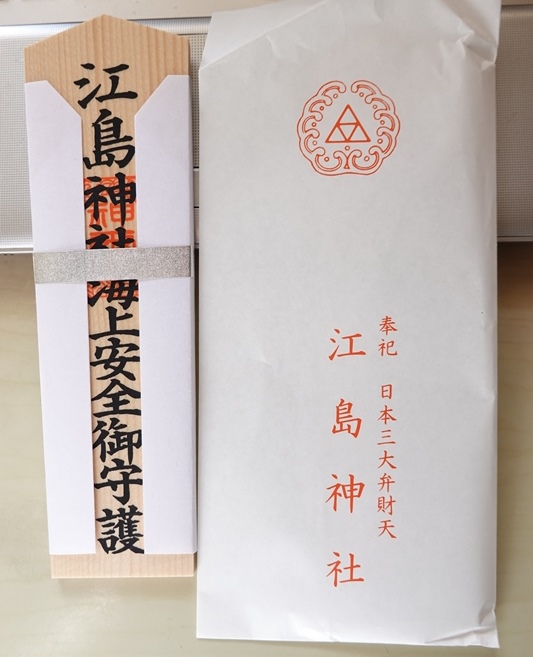 江島神社海上安全御守護
奉祀 日本三大弁財天
江島神社